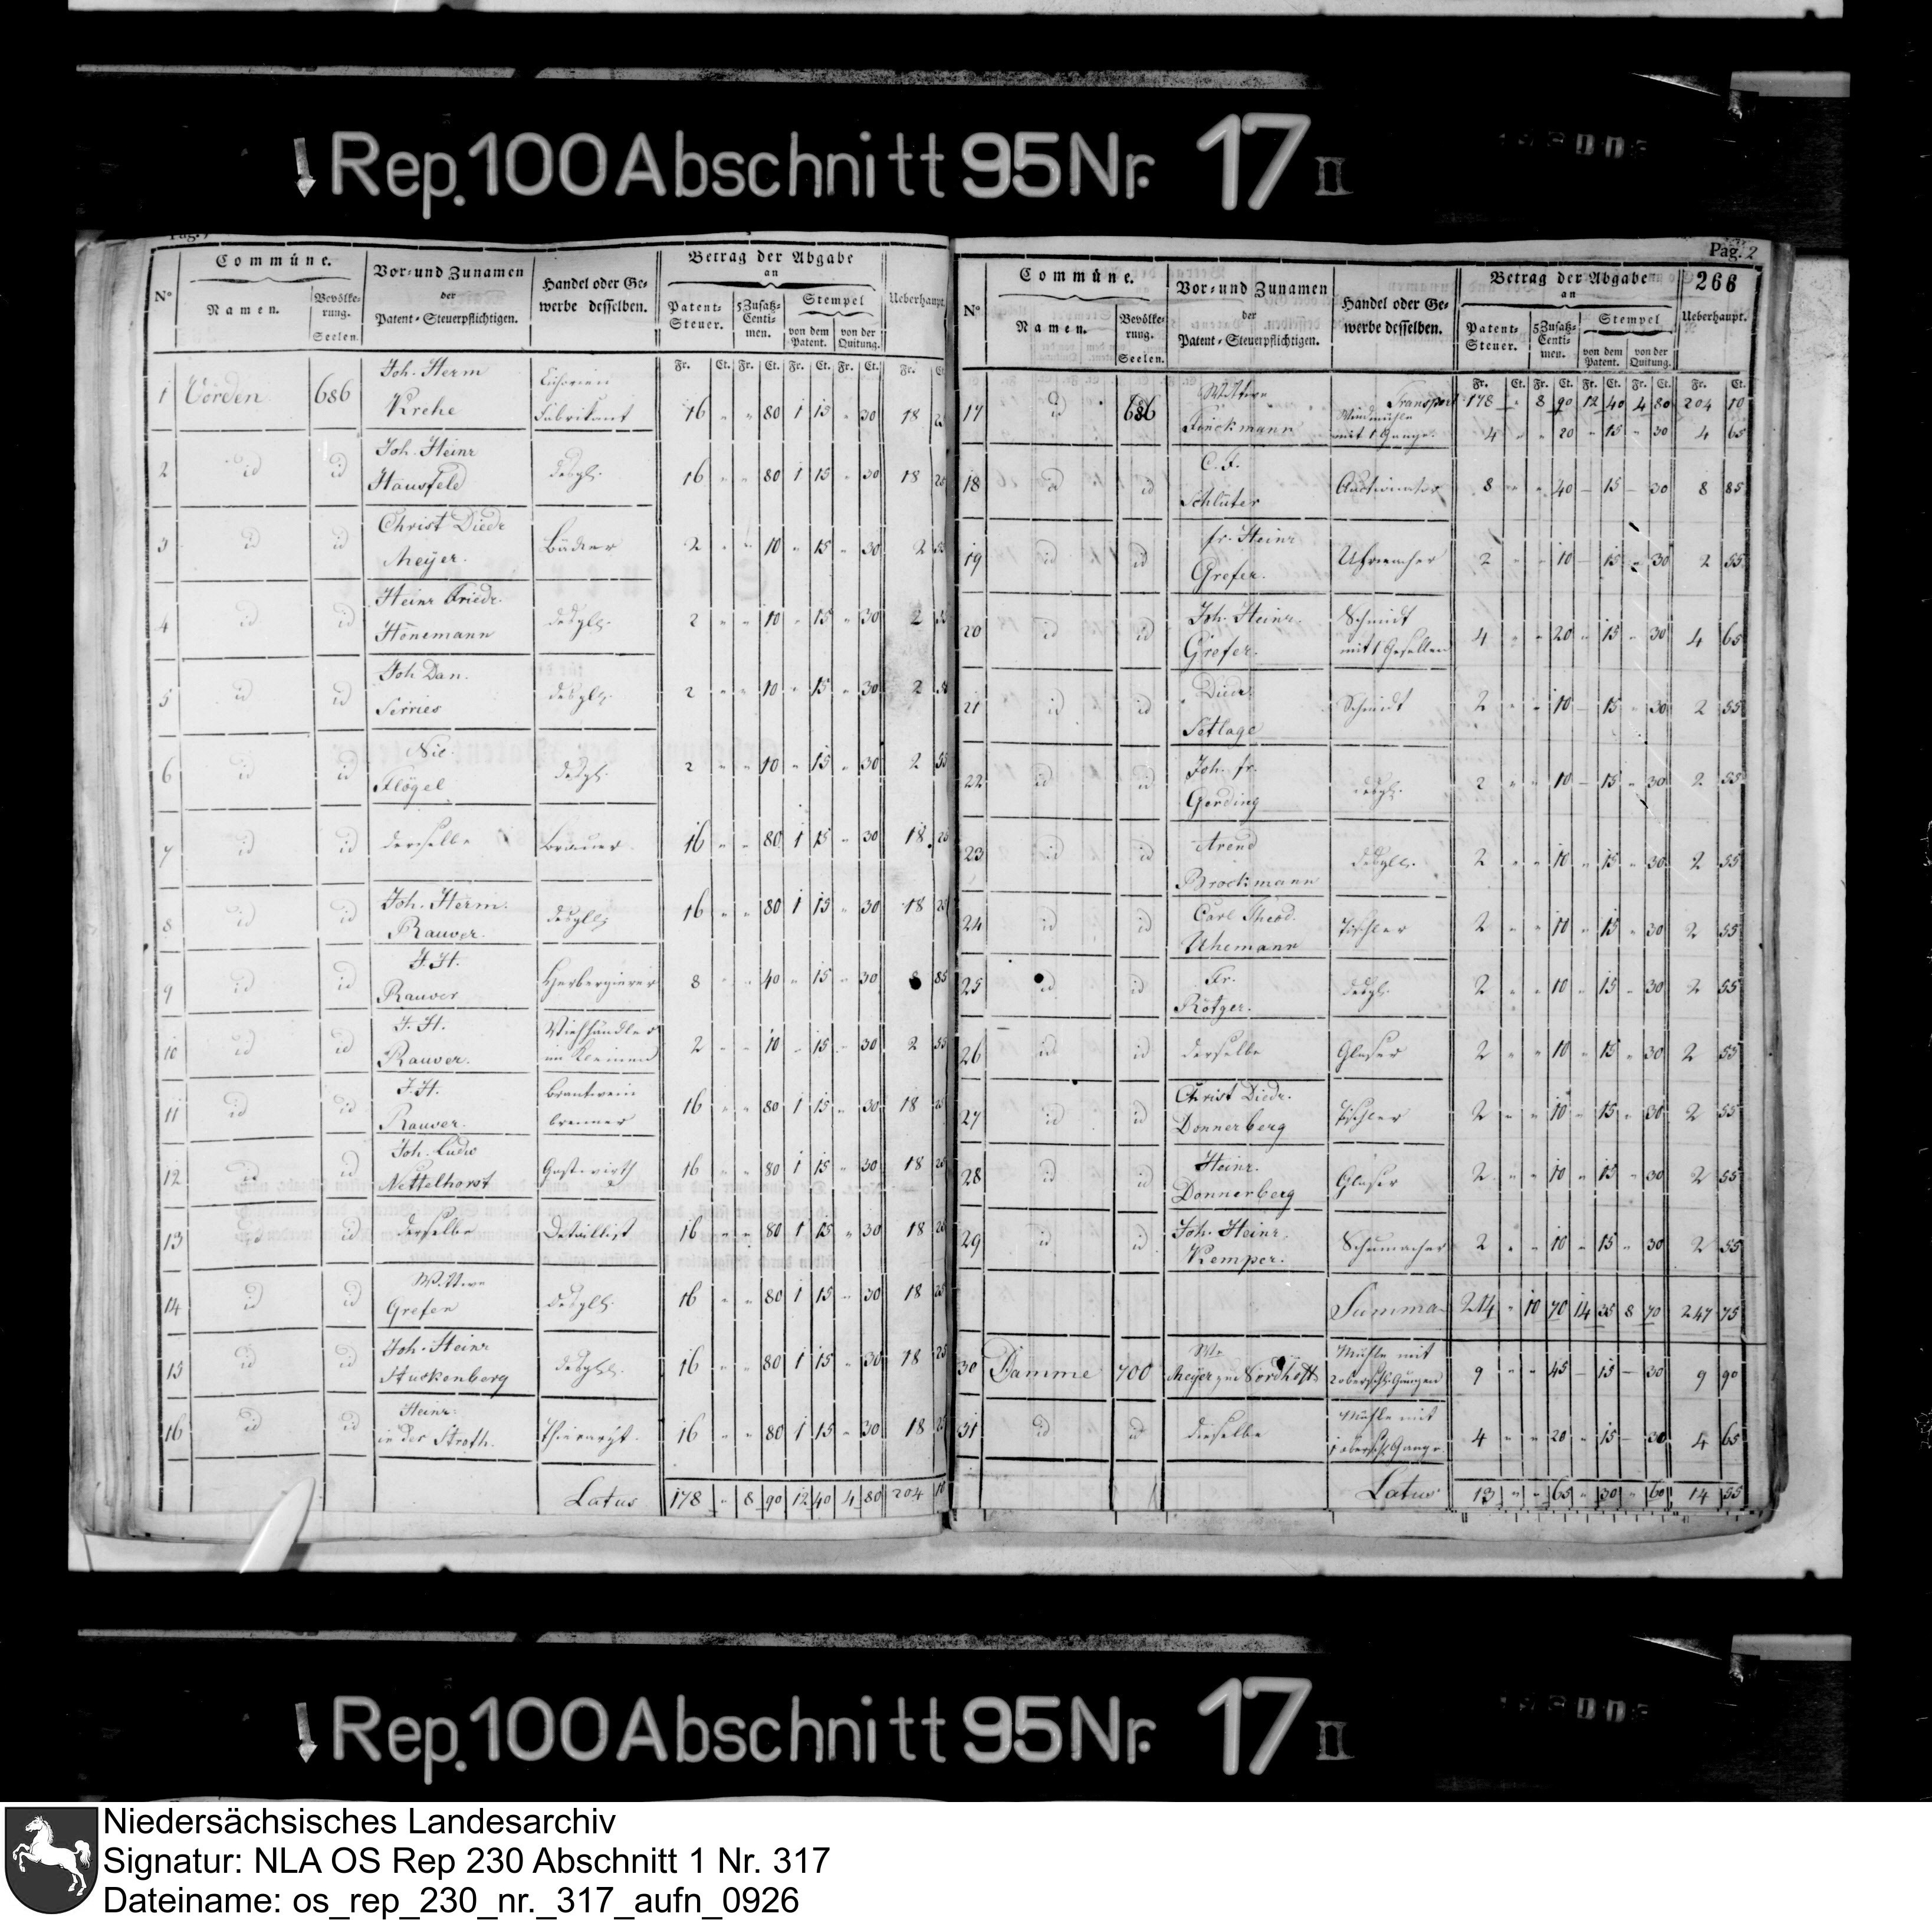 Rep. 100 Abschnitt 95 Nr. 17 II
Commüne.
Vor- und Zunamen
der
Patent-Steuerpflichtigen.
Handel oder Ge-
werbe desselben.
Betrag der Abgabe
an
N°
Namen.
Bevölke-
rung.
Seelen.
Patent-
Steuer.
5 Zusatz-
Centi-
men.
Stempel
von dem
Patent.
von der
Quitung.
Ueberhaupt.
Fr. Ct. Fr. Ct. Fr. Ct. Fr. Ct. Fr. Ct.
1 Vörden 686 Joh. Herm Krehe Cichorien Fabrikant 16 " " 80 1 15 " 30 18 25
2 id id Joh. Heinr Hausfeld desgl. 16 " " 80 1 15 " 30 18 25
3 id id Christ Diedr Meÿer. Bäcker 2 " " 10 " 15 " 30 2 55
4 id id Heinr Friedr. Hönemann desgl. 2 " " 10 " 15 " 30 2 55
5 id id Joh Dan. Serries desgl. 2 " " 10 " 15 " 30 2 55
6 id id Nic. Flögel desgl. 2 " " 10 " 15 " 30 2 55
7 id id derselbe Brauer 16 " " 80 1 15 " 30 18 25
8 id id Joh. Herm. Rauver. desgl. 16 " " 80 1 15 " 30 18 25
9 id id J. H. Rauver Herbergierer 8 " " 40 " 15 " 30 8 85
10 id id J. H. Rauver. Viehhändler im Kleinen 2 " " 10 " 15 " 30 2 55
11 id id J. H. Rauver. Brantwein brenner 16 " " 80 1 15 " 30 18 25
12 id id Joh. Ludw Nettelhorst Gastwirth 16 " " 80 1 15 " 30 18 25
13 id id derselbe Detaillist 16 " " 80 1 15 " 30 18 25
14 id id Wittwe Grefen desgl. 16 " " 80 1 15 " 30 18 25
15 id id Joh. Heinr Huskenberg desgl. 16 " " 80 1 15 " 30 18 25
16 id id Heinr. in der Stroth. Thierarzt. 16 " " 80 1 15 " 30 18 25
Latus 178 " 8 90 12 40 4 80 204 10
Pag. 2
266
Commüne.
Vor- und Zunamen
der
Patent-Steuerpflichtigen.
Handel oder Ge-
werbe desselben.
Betrag der Abgabe
an
N°
Namen.
Bevölke-
rung.
Seelen.
Patent-
Steuer.
5 Zusatz-
Centi-
men.
Stempel
von dem
Patent.
von der
Quitung.
Ueberhaupt.
Fr. Ct. Fr. Ct. Fr. Ct. Fr. Ct. Fr. Ct.
Transport 178 " 8 90 12 40 4 80 204 10
17 id 686 Wittwe Fenckmann Windmühle mit 1 Gange. 4 " " 20 " 15 " 30 4 65
18 id id C. F. Schlüter Auctionator 8 " " 40 " 15 " 30 8 85
19 id id fr. Heinr Grefer. Uhrmacher 2 " " 10 " 15 " 30 2 55
20 id id Joh. Heinr. Grefer. Schmidt mit 1 Gesellen 4 " " 20 " 15 " 30 4 65
21 id id Diedr. Setlage Schmidt 2 " " 10 " 15 " 30 2 55
22 id id Joh. fr. Gerding desgl. 2 " " 10 " 15 " 30 2 55
23 id id Arend Brockmann desgl. 2 " " 10 " 15 " 30 2 55
24 id id Carl Theod. Uhemann Tischler 2 " " 10 " 15 " 30 2 55
25 id id Fr. Rötger. desgl. 2 " " 10 " 15 " 30 2 55
26 id id derselbe Glaser 2 " " 10 " 15 " 30 2 55
27 id id Christ Diedr. Donnerberg Tischler 2 " " 10 " 15 " 30 2 55
28 id id Heinr. Donnerberg Glaser 2 " " 10 " 15 " 30 2 55
29 id id Joh. Heinr. Kemper. Schumacher 2 " " 10 " 15 " 30 2 55
Summa 214 " 10 70 14 35 8 70 247 75
30 Damme 700 Meÿer zu Nordhoff Mühle mit 2 oberschl. Gängen 9 " " 45 " 15 " 30 9 90
31 id id dieselbe Mühle mit 1 oberschl. Gange. 4 " " 20 " 15 " 30 4 65
Latus 13 " " 65 " 30 " 60 14 55
Rep. 100 Abschnitt 95 Nr. 17 II
Niedersächsisches Landesarchiv
Signatur: NLA OS Rep 230 Abschnitt 1 Nr. 317
Dateiname: os_rep_230_nr._317_aufn_0926